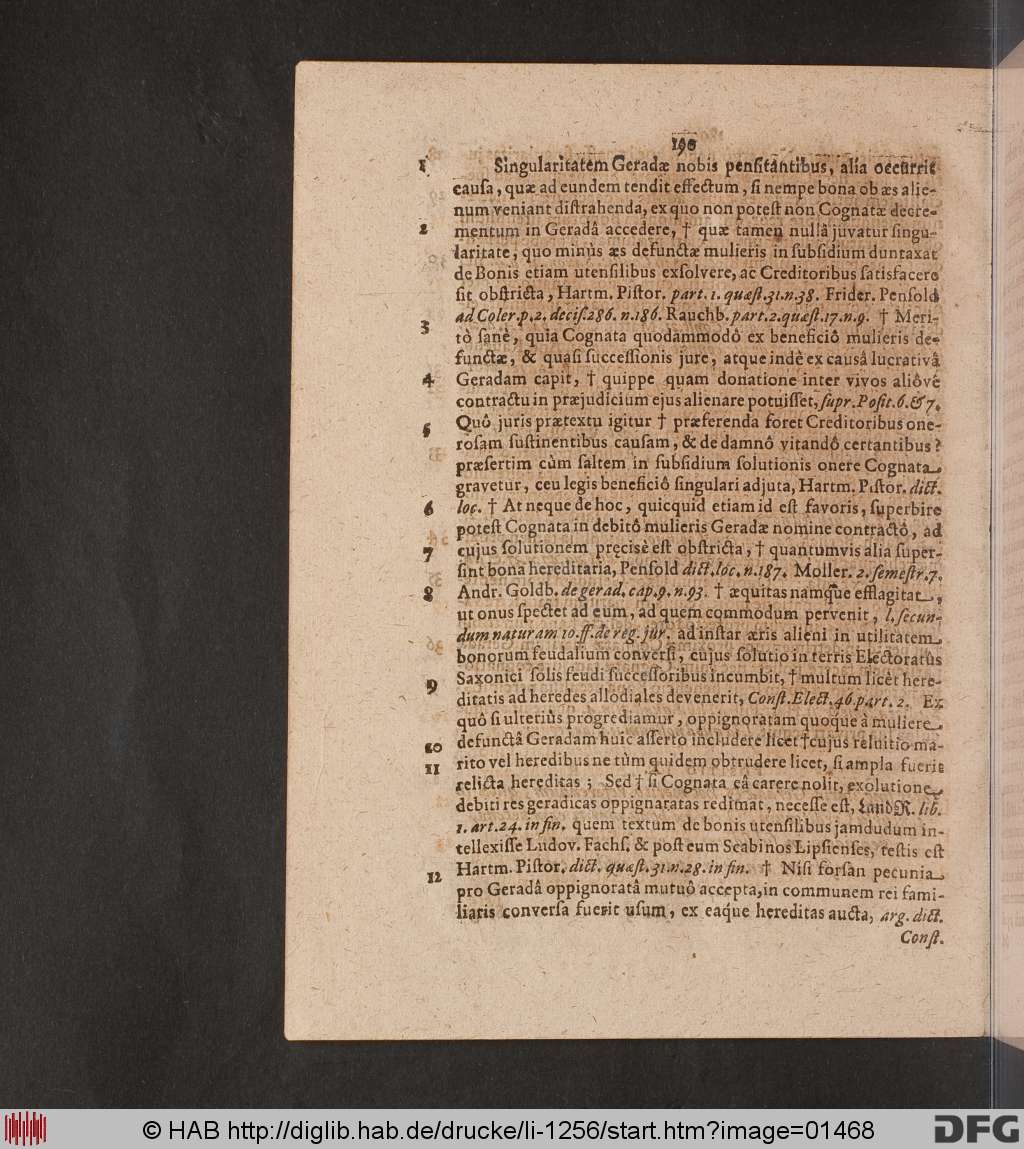 190
1 Singularitatem Geradæ nobis pensitantibus, alia occurrit
causa, quæ ad eundem tendit effectum, si nempe bona ob æs alie-
num veniant distrahenda, ex quo non potest non Cognatæ decre-
2 mentum in Geradâ accedere, † quæ tamen nullâ juvatur singu-
laritate, quo minùs æs defunctæ mulieris in subsidium duntaxat
de Bonis etiam utensilibus exsolvere, ac Creditoribus satisfacere
sit obstricta, Hartm. Pistor. part. 1. quæst. 31. n. 38. Frider. Pensold
ad Coler. p. 2. decis. 286. n. 186. Rauchb. part. 2. quæst. 17. n. 9. † Meri-
3 tò sanè, quia Cognata quodammodô ex beneficiô mulieris de-
functæ, & quasi successionis jure, atque indè ex causâ lucrativâ
4 Geradam capit, † quippe quam donatione inter vivos aliôvé
contractu in præjudicium ejus alienare potuisset, supr. Posit. 6. & 7.
5 Quô juris prætextu igitur † præferenda foret Creditoribus one-
rosam sustinentibus causam, & de damnô vitandô certantibus?
præsertim cùm saltem in subsidium solutionis onere Cognata
gravetur, ceu legis beneficiô singulari adjuta, Hartm. Pistor. dict.
6 loc. † At neque de hoc, quicquid etiam id est favoris, superbire
potest Cognata in debitô mulieris Geradæ nomine contractô, ad
7 cujus solutionem pręcisè est obstricta, † quantumvis alia super-
sint bona hereditaria, Pensold dict. loc. n. 187. Moller. 2. semestr. 7.
8 Andr. Goldb. de gerad. cap. 9. n. 93. † æquitas namque efflagitat,
ut onus spectet ad eum, ad quem commodum pervenit, l. secun-
dum naturam 10. ff. de reg. jur. ad instar æris alieni in utilitatem
bonorum feudalium conversi, cujus solutio in terris Electoratûs
9 Saxonici solis feudi successoribus incumbit, † multum licèt here-
ditatis ad heredes allodiales devenerit, Const. Elect. 46 part. 2. Ex
quô si ulteriùs progrediamur, oppignoratam quoque à muliere
10 defunctâ Geradam huic asserto includere licet † cujus reluitio ma-
11 rito vel heredibus ne tùm quidem obtrudere licet, si ampla fuerit
relicta hereditas; Sed † si Cognata eâ carere nolit, exolutione
debiti res geradicas oppignaratas redimat, necesse est, LandR. lib.
1. art. 24. in fin. quem textum de bonis utensilibus jamdudum in-
tellexisse Ludov. Fachs. & post eum Scabinos Lipsienses, testis est
12 Hartm. Pistor. dict. quæst. 31. n. 28. in fin. † Nisi forsan pecunia
pro Geradâ oppignoratâ mutuô accepta, in communem rei fami-
liaris conversa fuerit usum, ex eaque hereditas aucta, arg. dict.
Const.
© HAB http://diglib.hab.de/drucke/li-1256/start.htm?image=01468
DFG